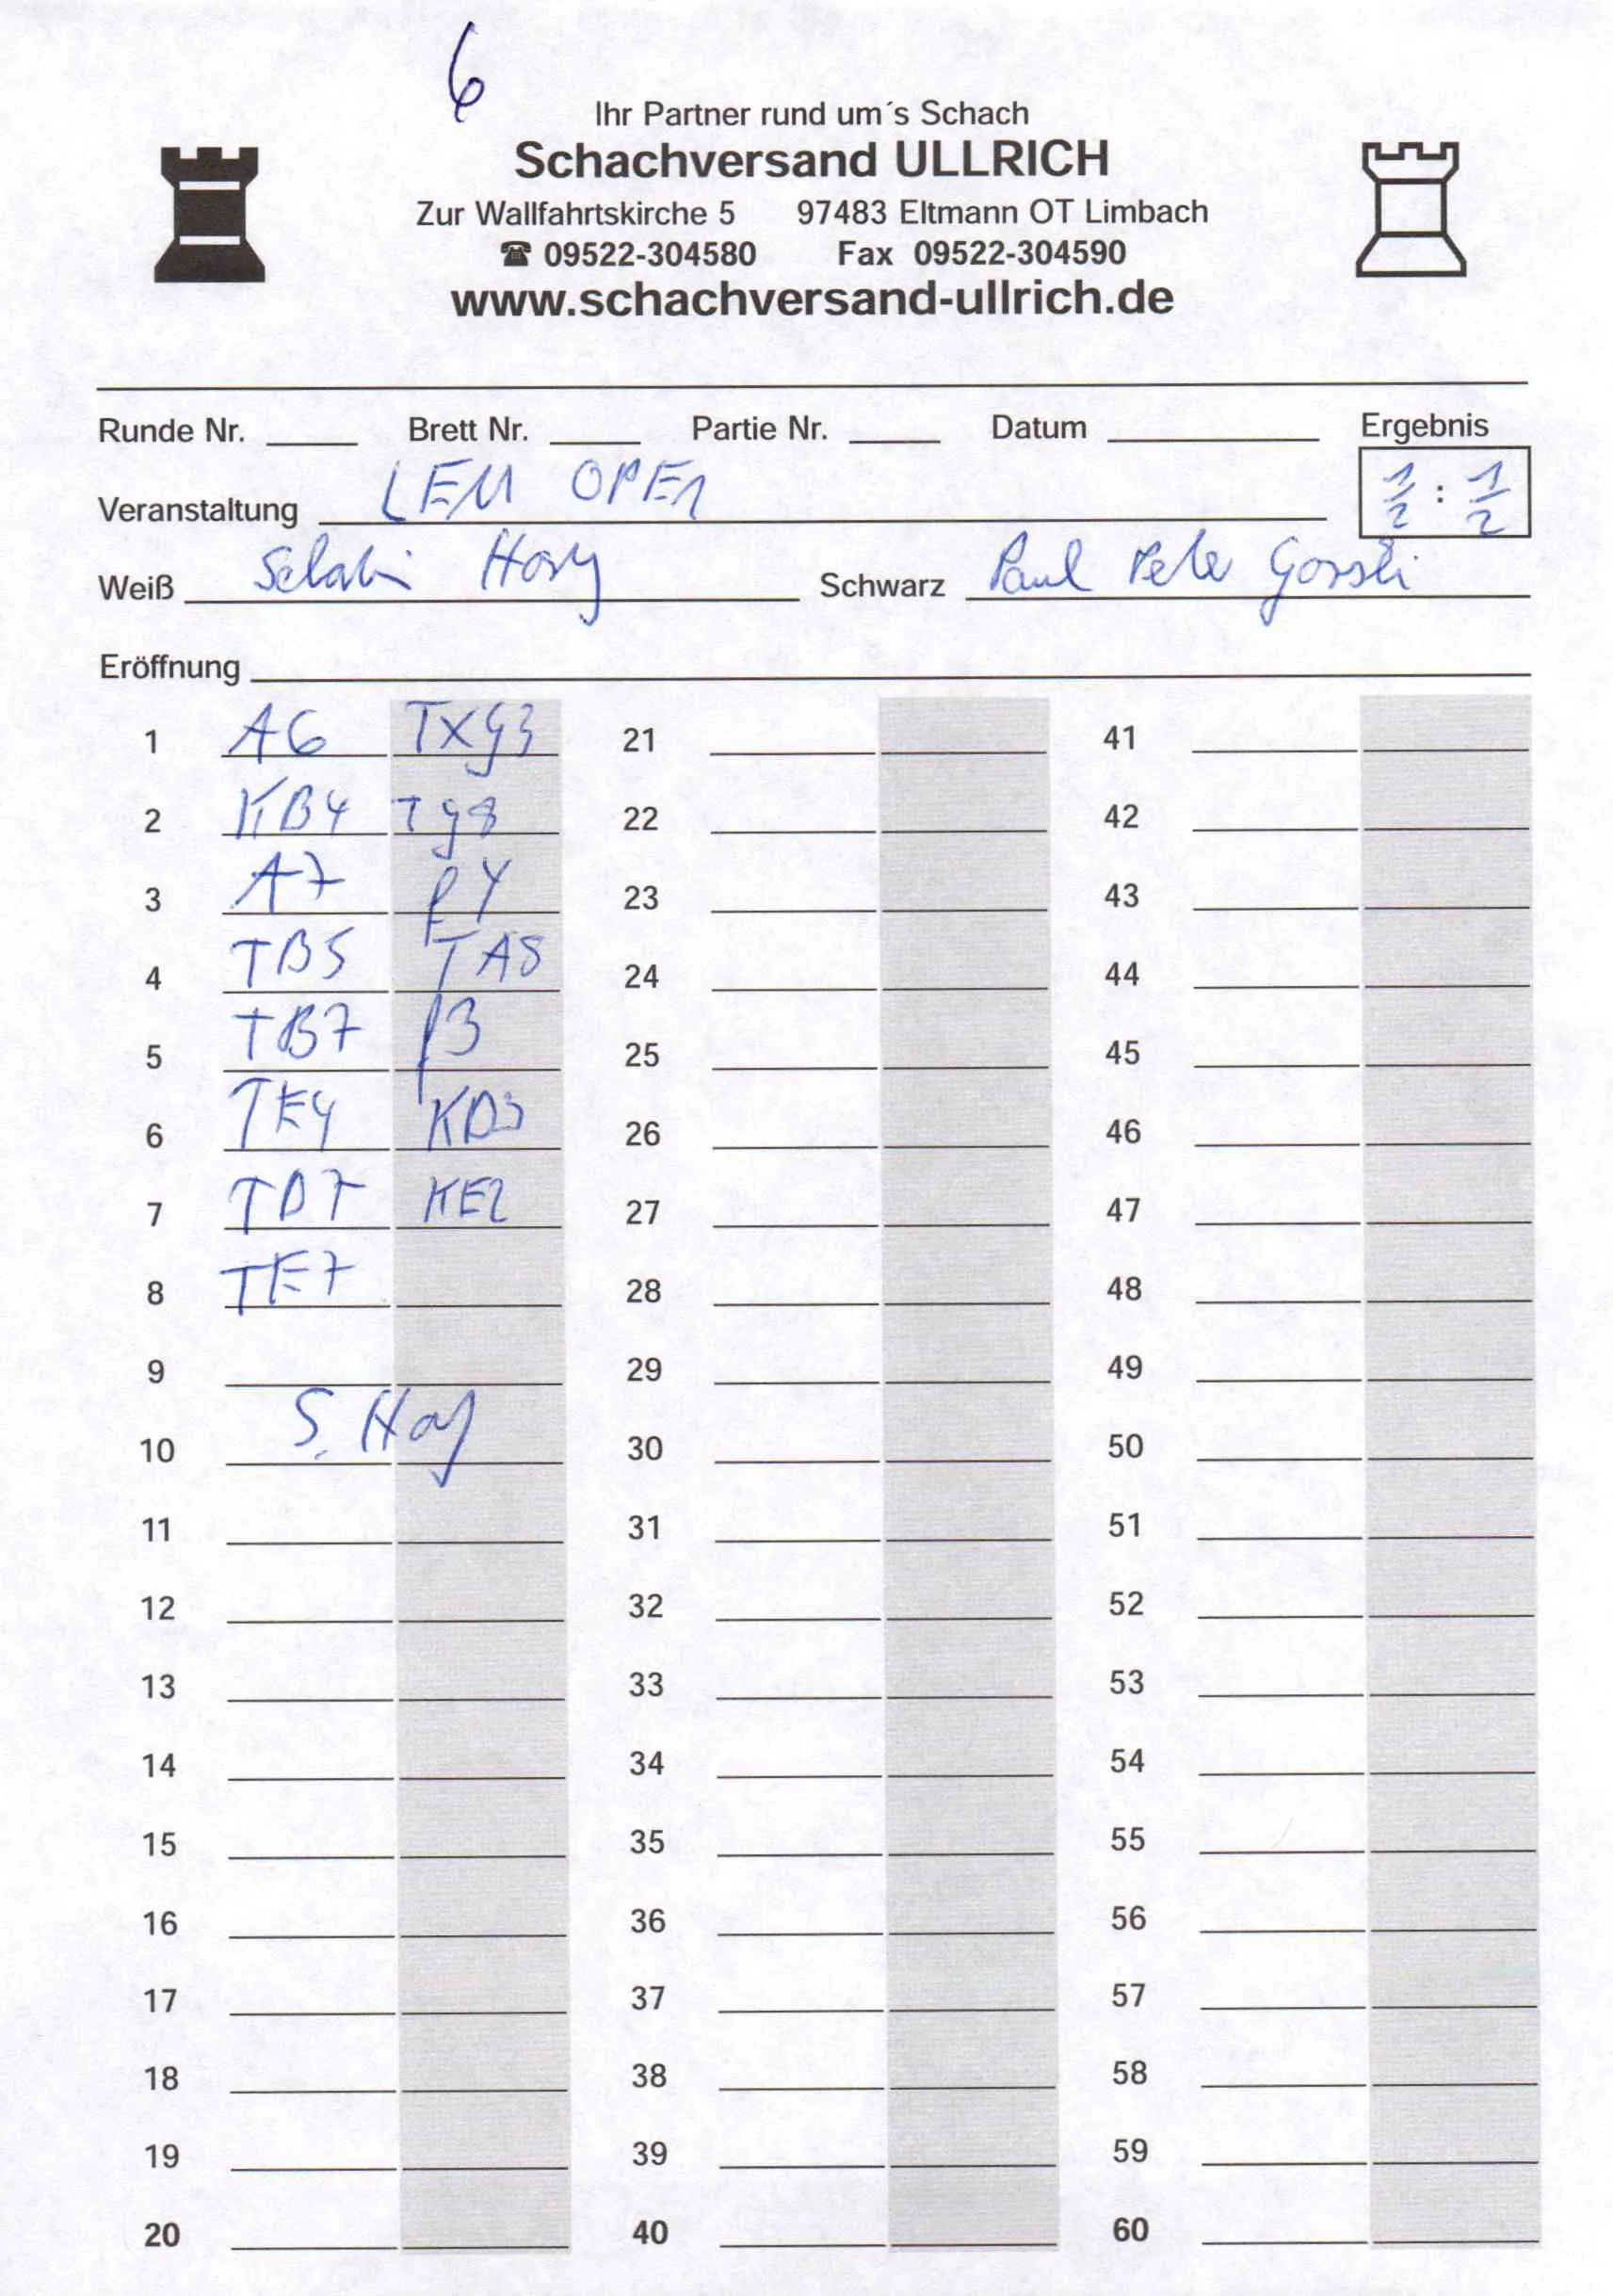 6
Ihr Partner rund um´s Schach
Schachversand ULLRICH
Zur Wallfahrtskirche 5 97483 Eltmann OT Limbach
☎ 09522-304580 Fax 09522-304590
www.schachversand-ullrich.de
Runde Nr. Brett Nr. Partie Nr. Datum Ergebnis
Veranstaltung LEM OPEN 1/2 : 1/2
Weiß Schwarz Paul Peter
Eröffnung
1 A6 TXg3 21 41
2 KB4 Tg8 22 42
3 A7 f4 23 43
4 TB5 TA8 24 44
5 TB7 f3 25 45
6 TE4 KD3 26 46
7 TD7 KE2 27 47
8 TE7 28 48
9 29 49
10 S. 30 50
11 31 51
12 32 52
13 33 53
14 34 54
15 35 55
16 36 56
17 37 57
18 38 58
19 39 59
20 40 60